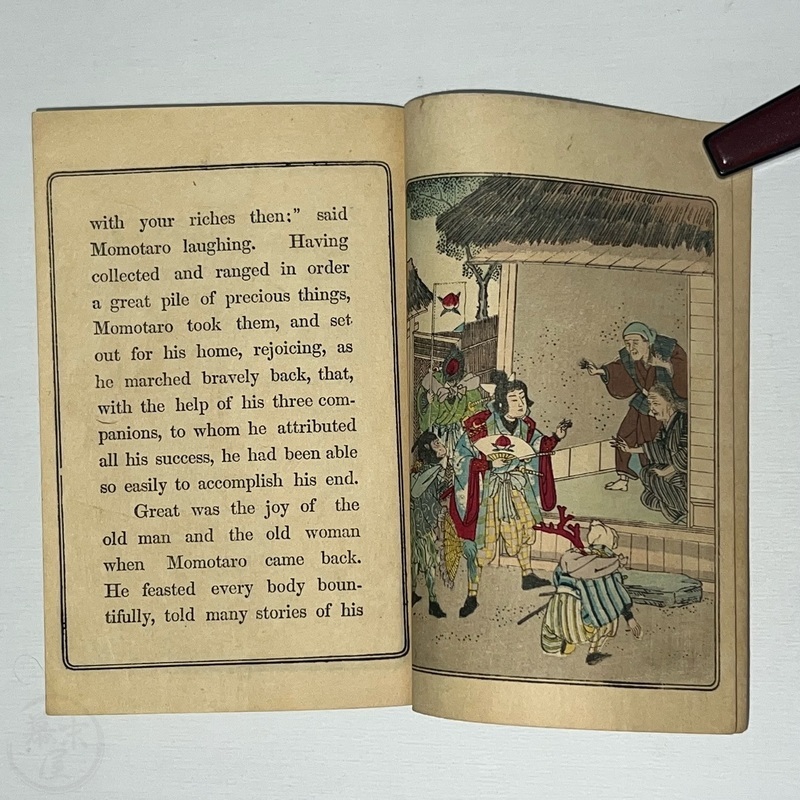 with your riches then:” said
Momotaro laughing. Having
collected and ranged in order
a great pile of precious things,
Momotaro took them, and set
out for his home, rejoicing, as
he marched bravely back, that,
with the help of his three com-
panions, to whom he attributed
all his success, he had been able
so easily to accomplish his end.
Great was the joy of the
old man and the old woman
when Momotaro came back.
He feasted every body boun-
tifully, told many stories of his